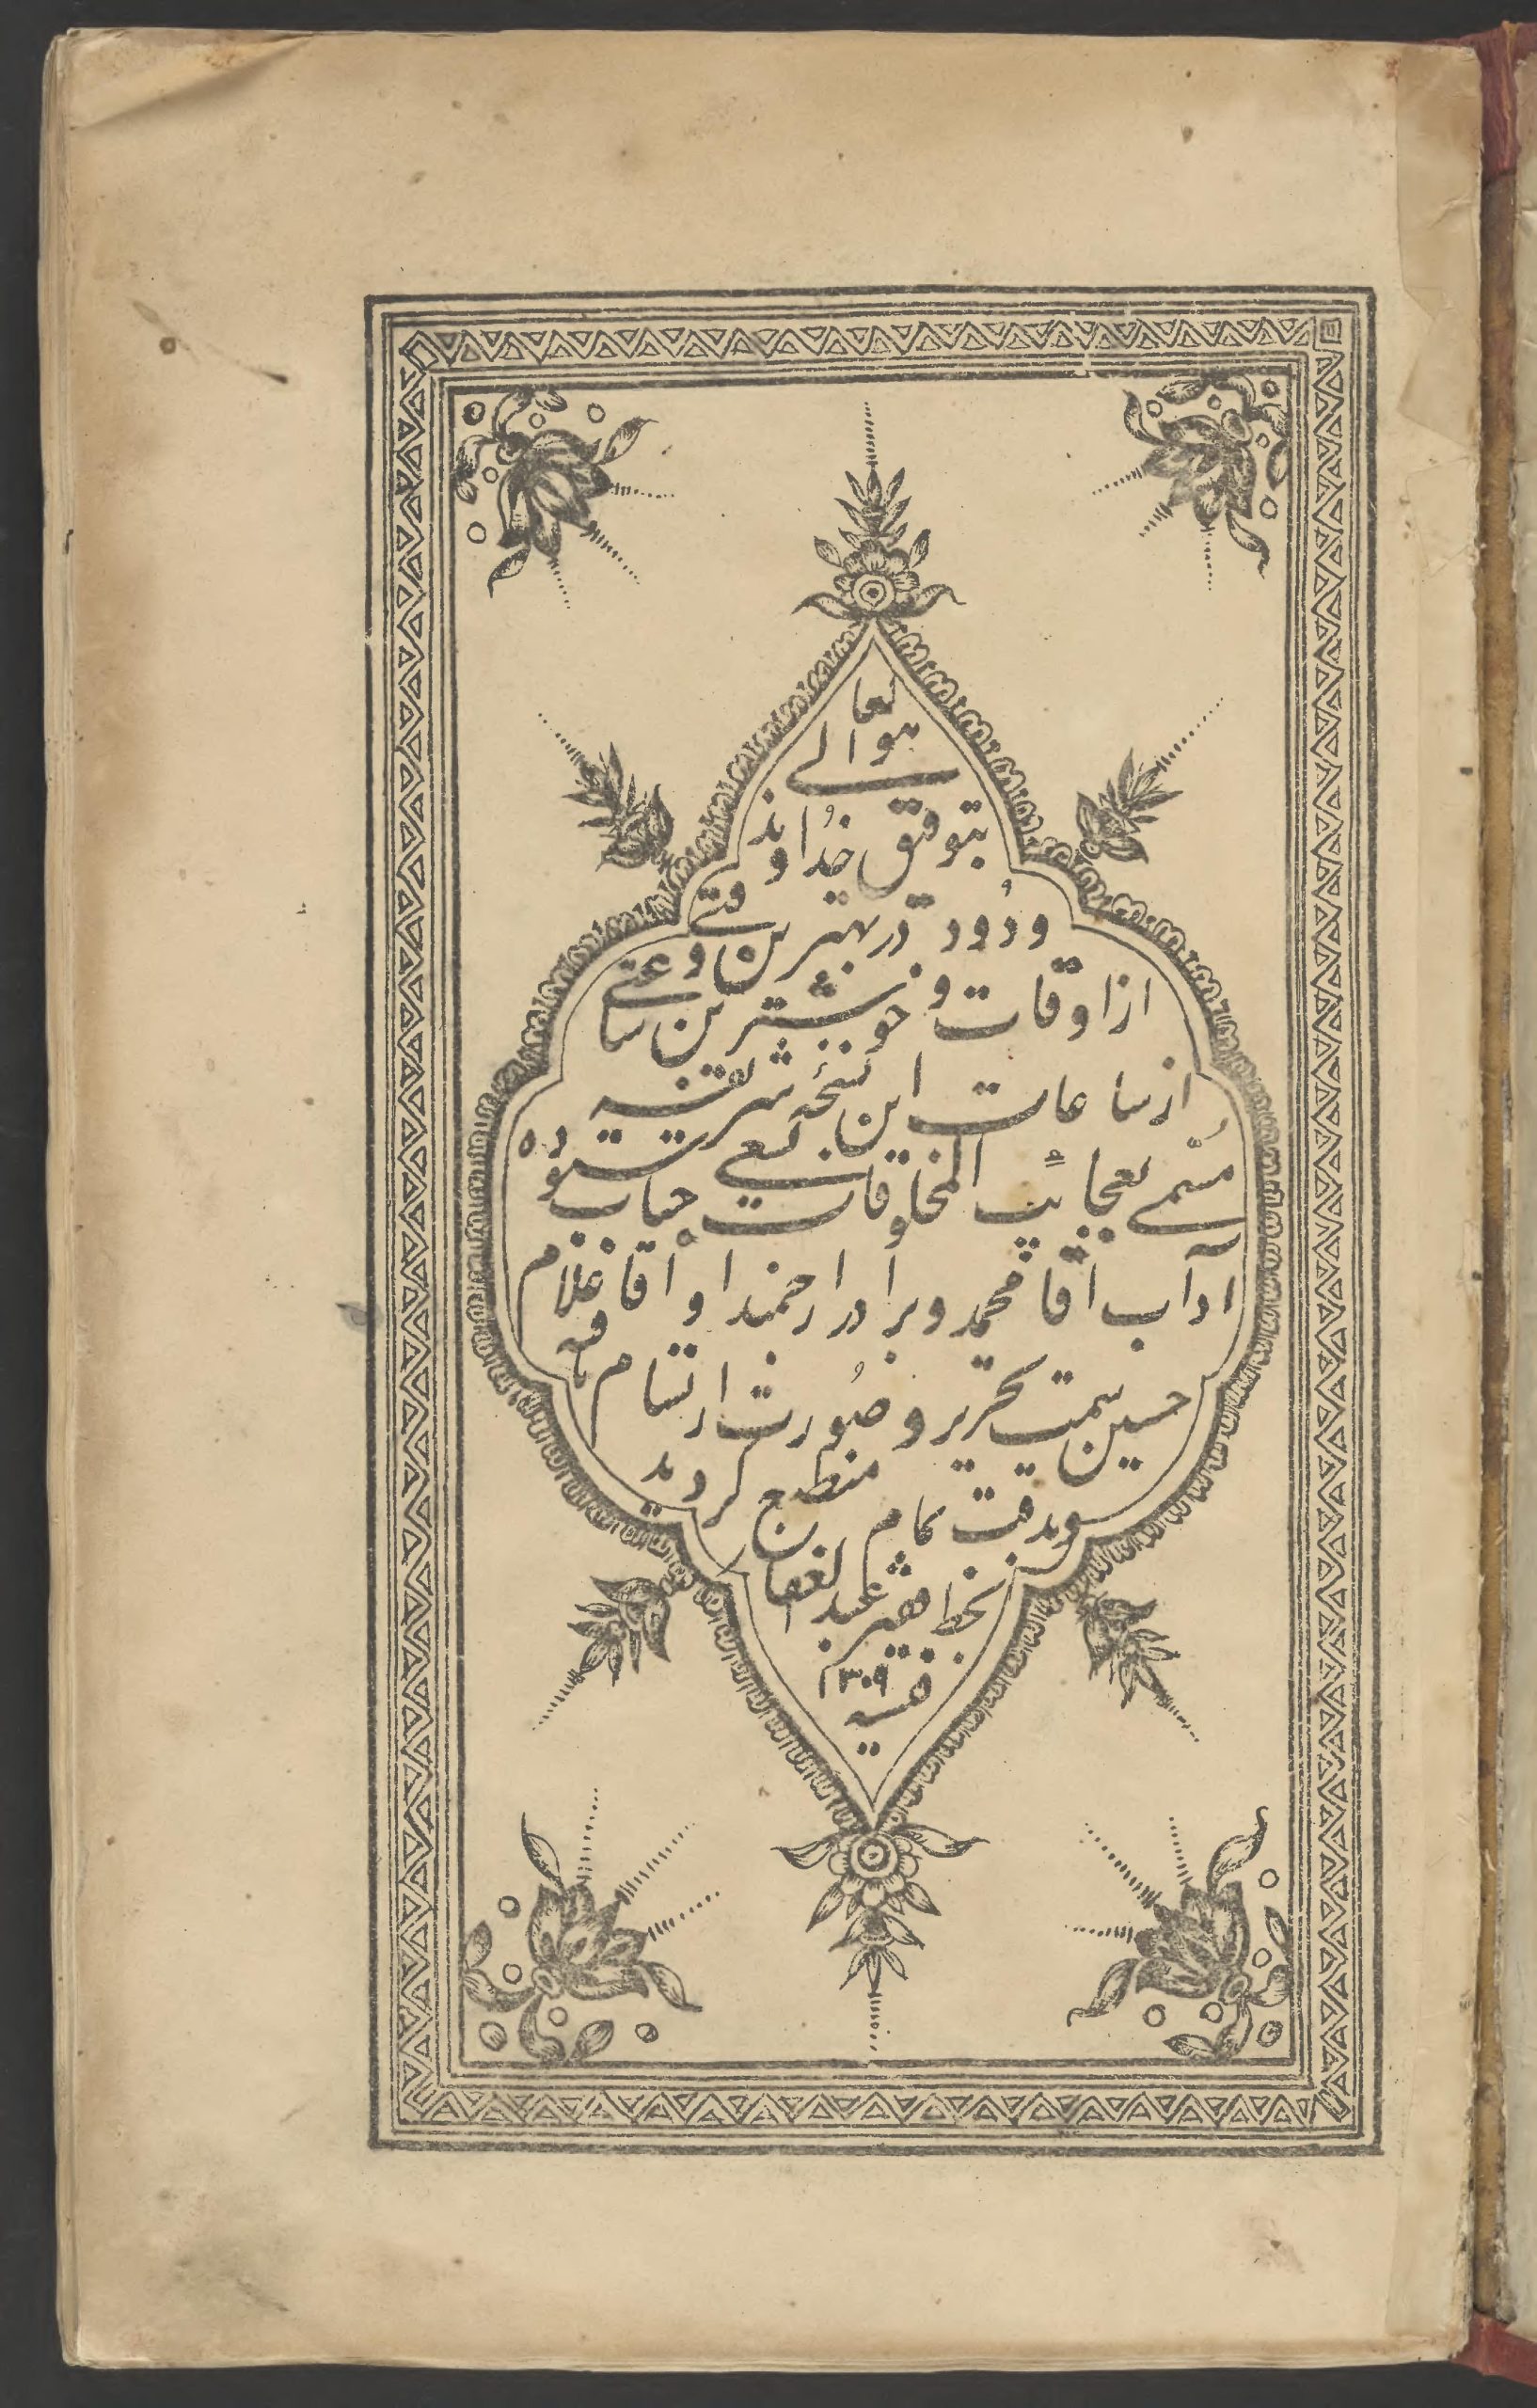 هو تعالی
بتوفیق خداوند
ودود در بهترین وقتی
از اوقات و خوشترین ساعتی
از ساعات این نسخهٔ شریفه
مسمی بعجایب المخلوقات بسعی جناب ستوده
آداب آقا محمد و برادر ارجمند او آقا غلام
حسین سمت تحریر و صورت ارتسام یافته
و بدقت تمام منطبع گردید
بخط فقیر عبد الغفار
فی سنه ۱۳۰۹